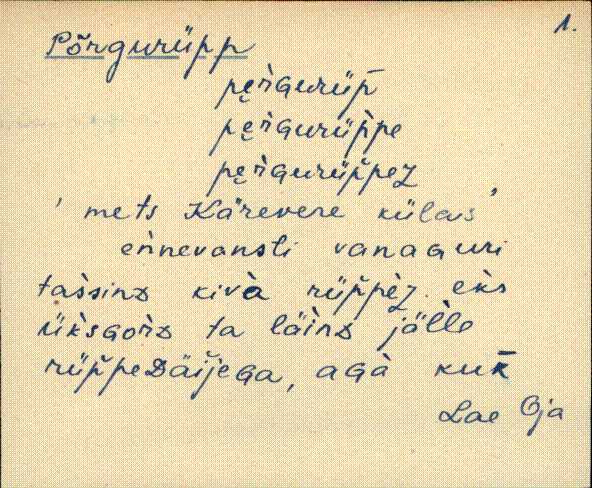 1.
Põrgurüpp
pe̮r̀Gurüp̄
pe̮r̀Gurüp̀pe
pe̮r̀Gurüp̆peZ
' mets Kärevere külas '
eǹnevansti vanaGuri
tas̀sinD kivà rüp̆pèZ. eks
ük̀sGorD ta läìnD jäl̀le
rüp̆peDäi̯jeGa, aGà kuk̄
Lae Oja